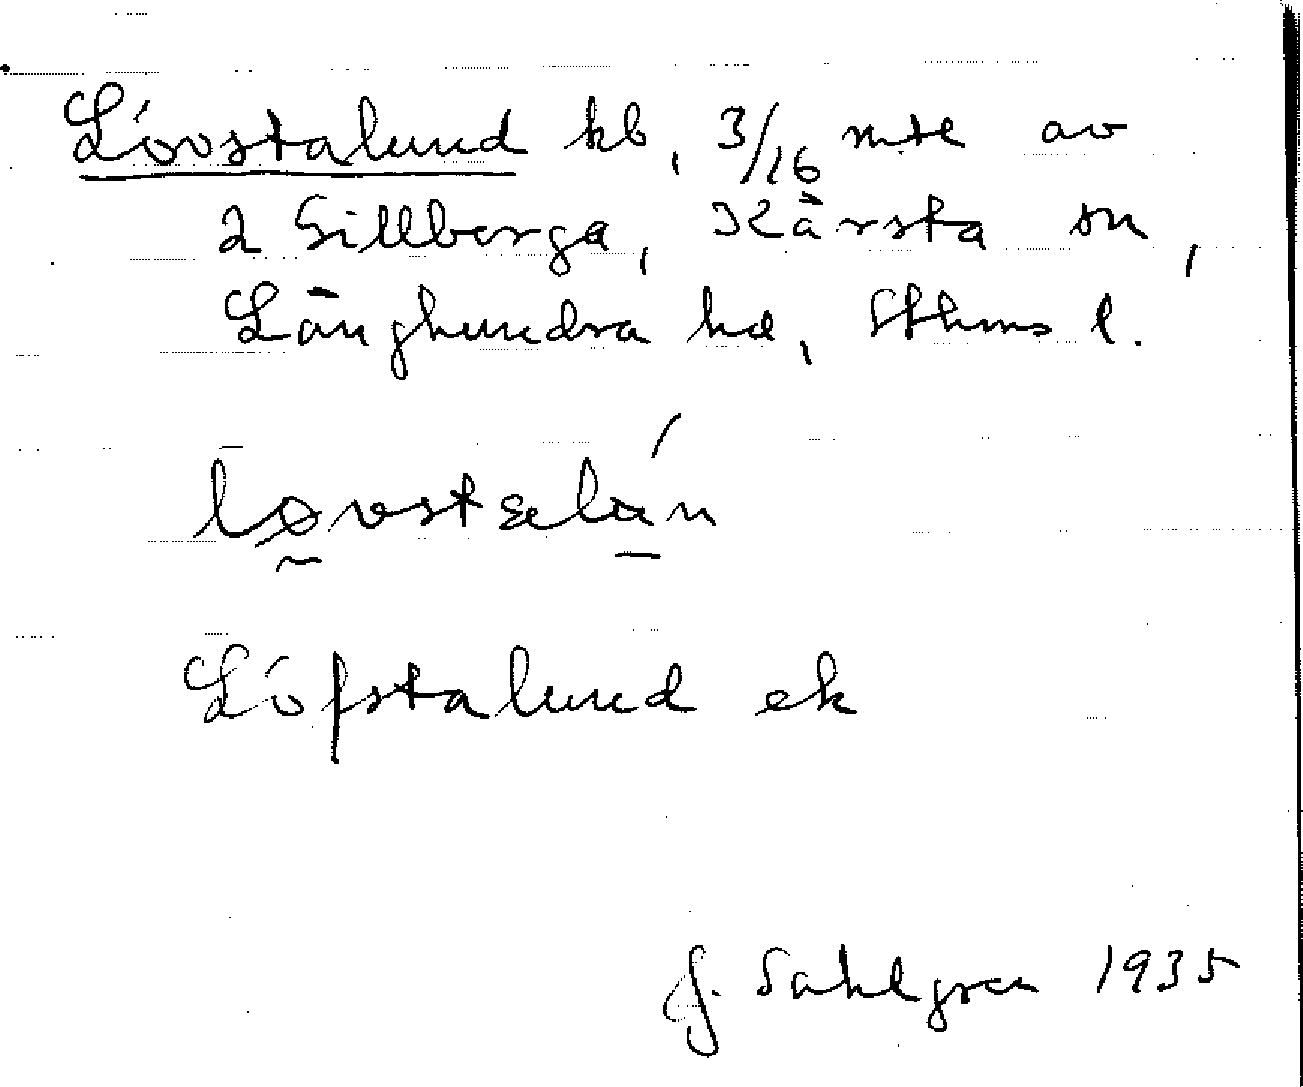 Lövstalund hb, 3/16 mtl av
2 Gillberga, Kårsta sn,
Långhundra hd, Sthms l.
løvstaelún
Löfstalund ek
J. Sahlgren 1935